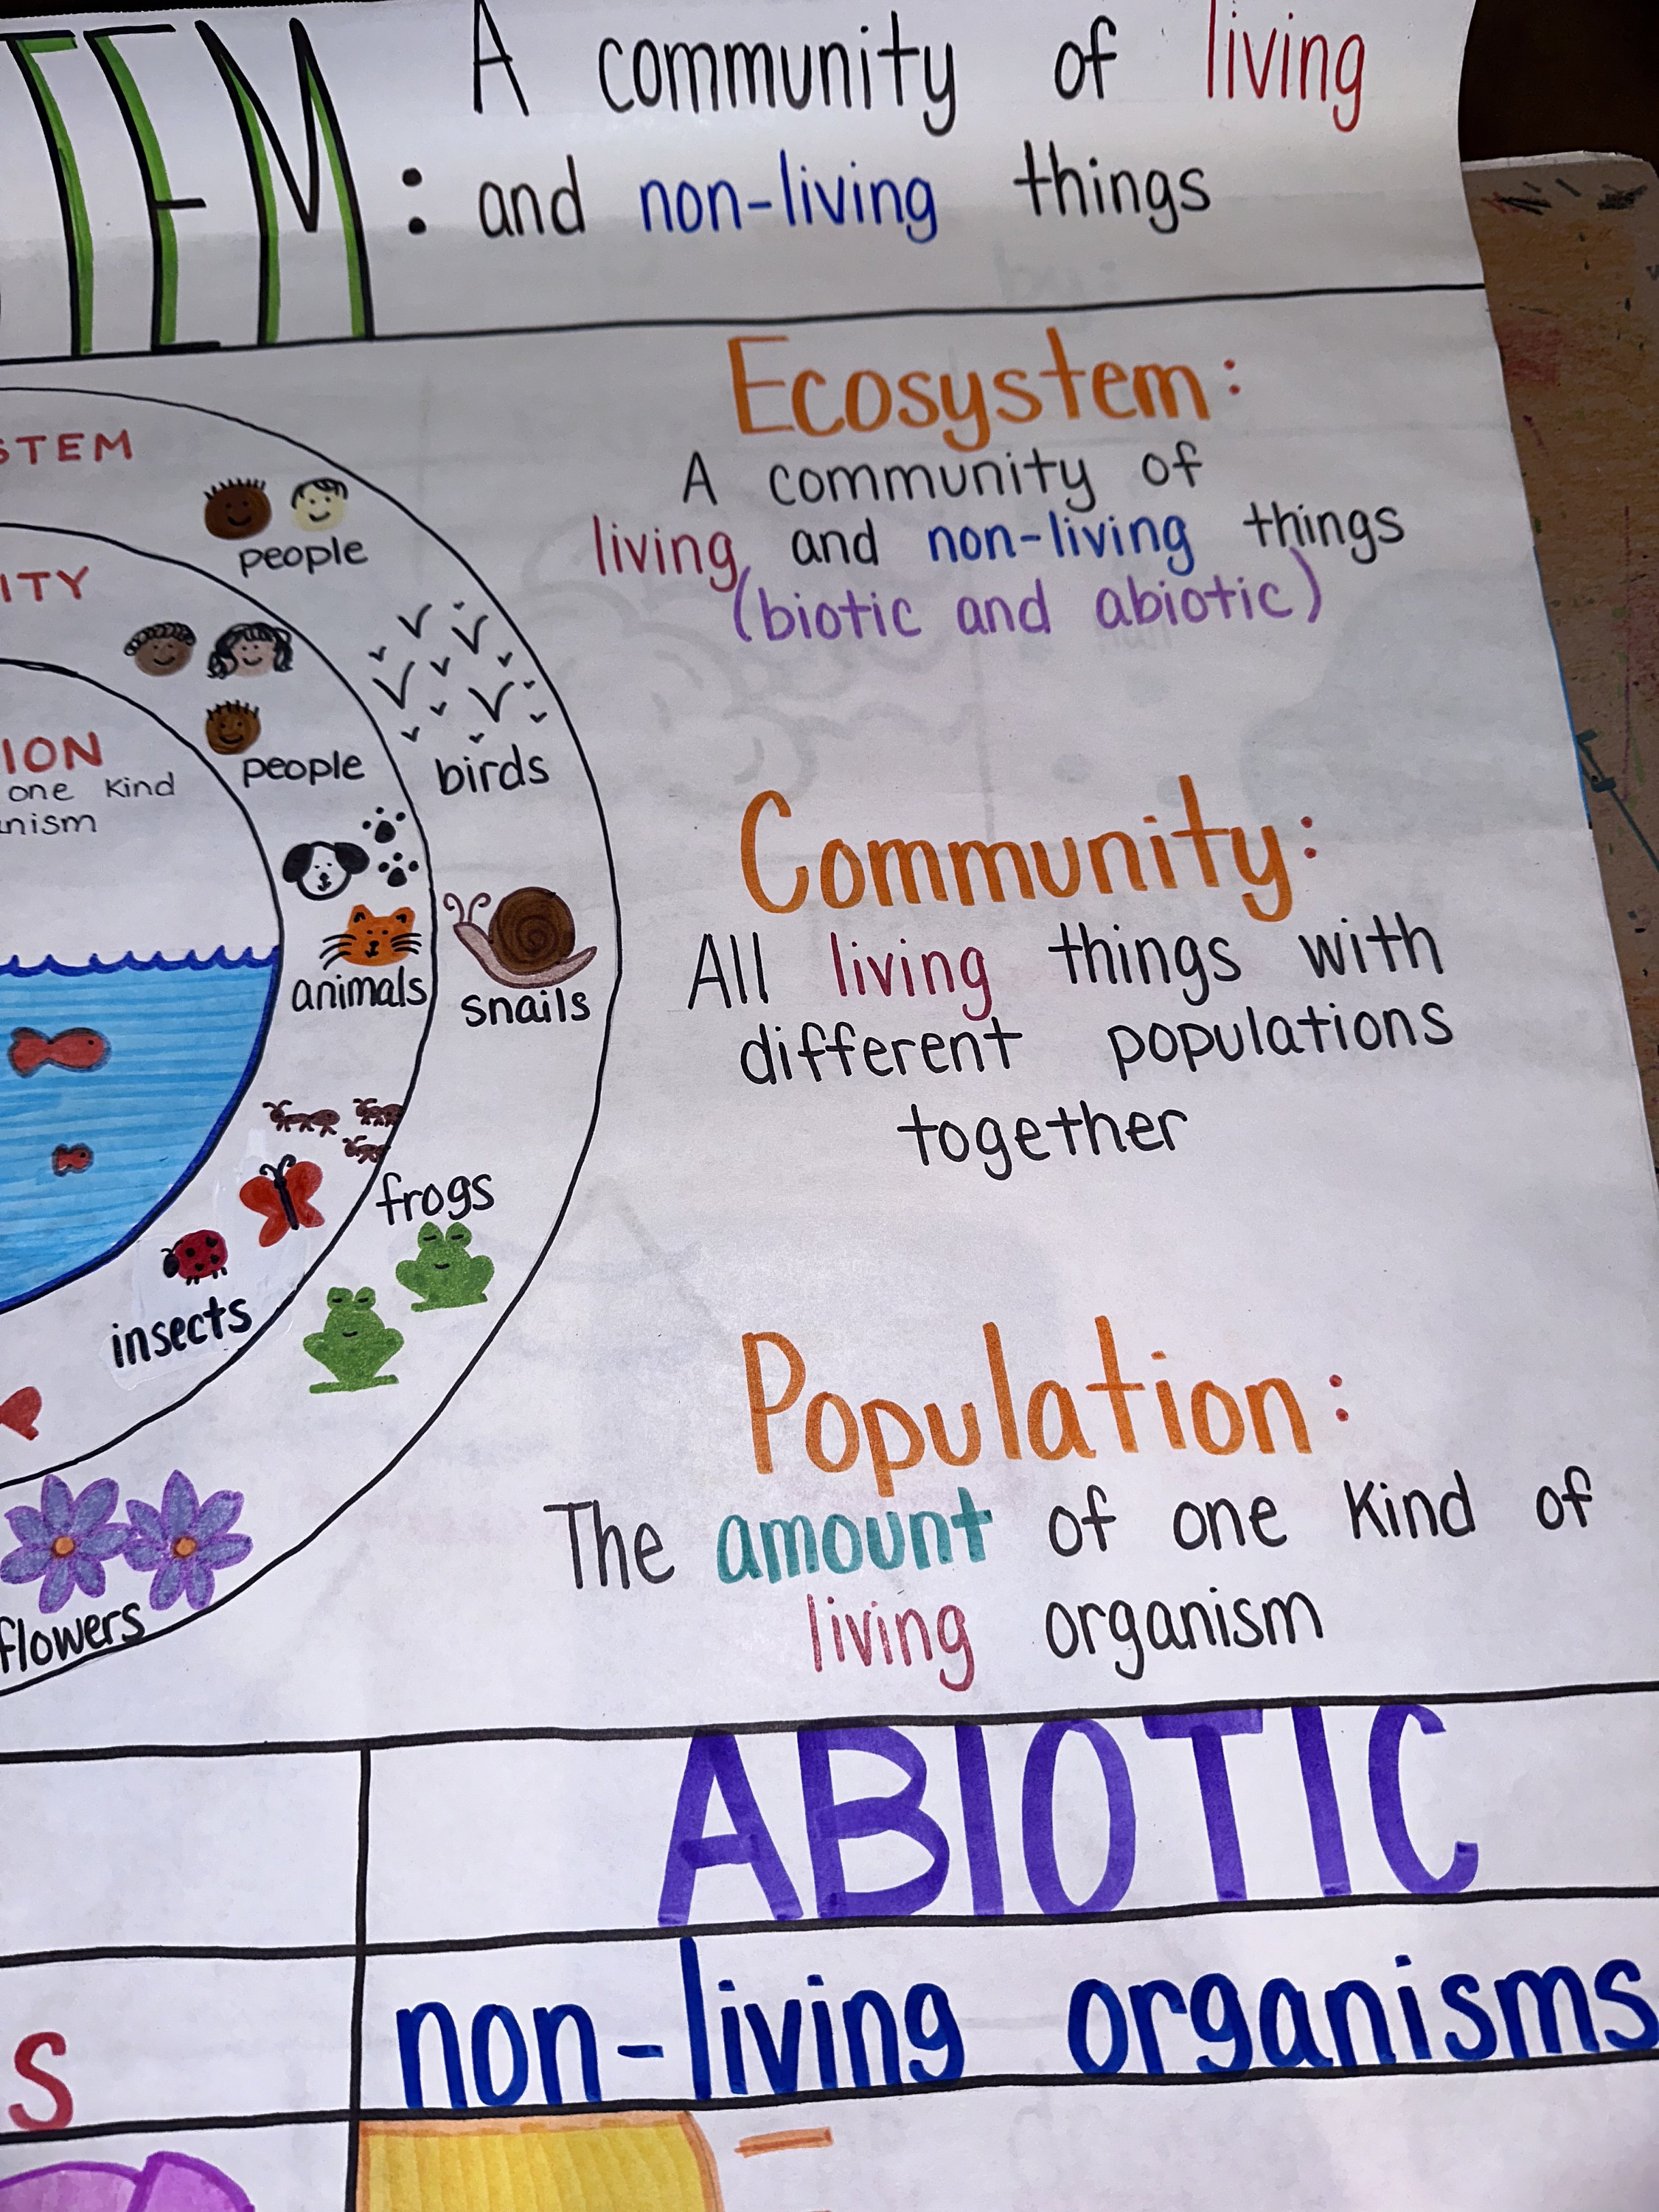 TEM : A community of living
and non-living things
STEM
people
ITY
people
ION
one Kind
nism
birds
animals
snails
frogs
insects
flowers
Ecosystem:
A community of
living and non-living things
(biotic and abiotic)
Community:
All living things with
different populations
together
Population:
The amount of one Kind of
living organism
ABIOTIC
s
non-living organisms